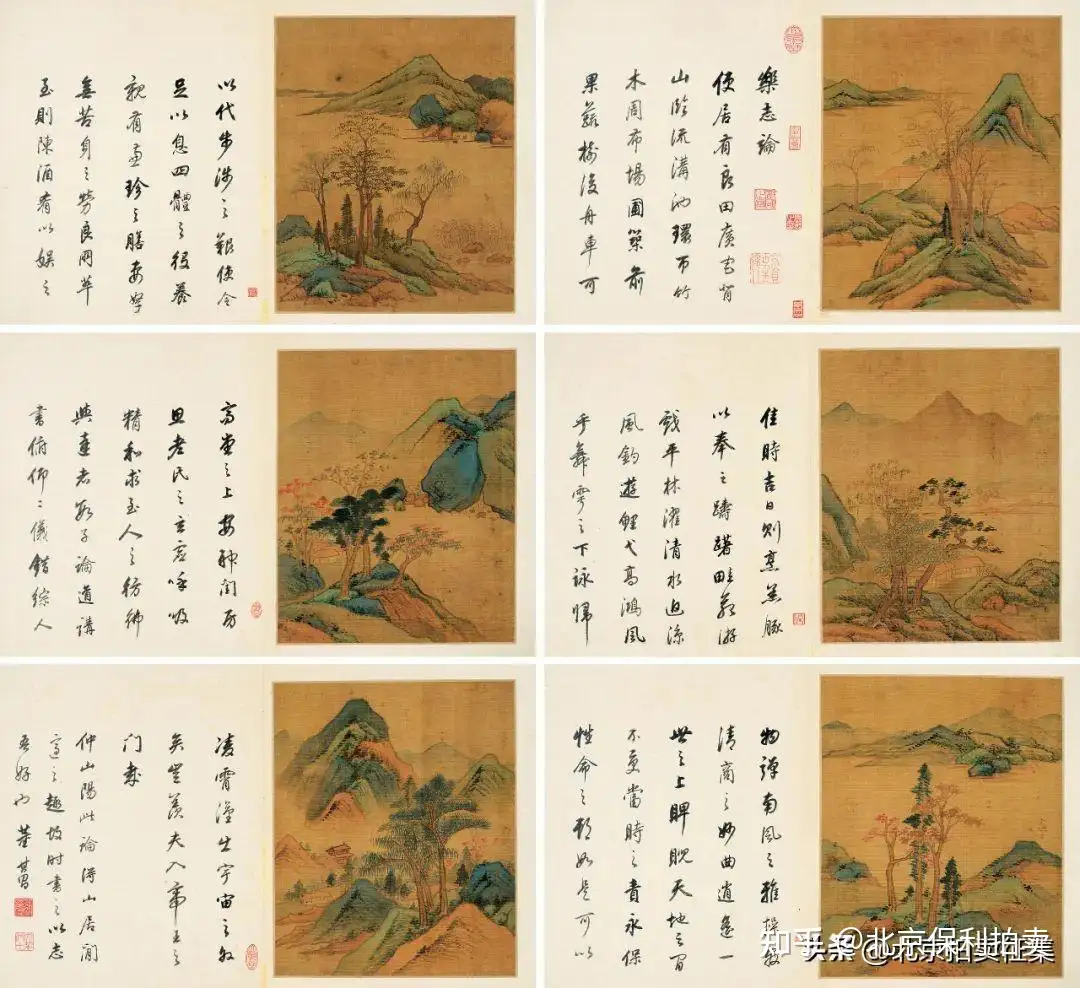 樂志論
使居有良田廣宅背
山臨流溝池環帀竹
木周布場圃築前
果蔬樹後舟車可
以代步涉之艱使令
足以息四體之役養
親有兼珍之膳妻孥
無苦身之勞良朋萃
至則陳酒肴以娛之
佳時吉日則烹羔豚
以奉之躊躇畦苑游
戲平林濯清水追涼
風釣遊鯉弋高鴻風
乎舞雩之下詠歸
高堂之上安神閨房
思老氏之玄虛呼吸
精和求至人之彷彿
與達者數子論道講
書俯仰二儀錯綜人
物彈南風之雅操發
清商之妙曲逍遙一
世之上睥睨天地之間
不受當時之責永保
性命之期如是可以
凌霄漢出宇宙之外
矣豈羨夫入帝王之
門哉
仲山陽此論得山居閒
適之趣故時書之以志
吾好也 董其昌
知乎 @北京保利拍卖